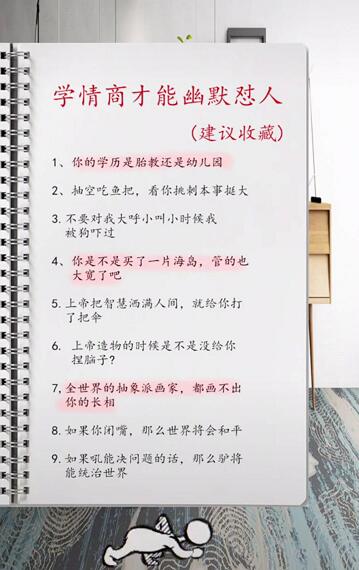 学情商才能幽默怼人
(建议收藏)
1、你的学历是胎教还是幼儿园
2、抽空吃鱼把，看你挑刺本事挺大
3、不要对我大呼小叫小时候我
被狗吓过
4、你是不是买了一片海岛，管的也
大宽了吧
5、上帝把智慧洒满人间，就给你打
了把伞
6、上帝造物的时候是不是没给你
捏脑子?
7,全世界的抽象派画家，都画不出
你的长相
8、如果你闭嘴，那么世界将会和平
9、如果吼能决问题的话，那么驴将
能统治世界